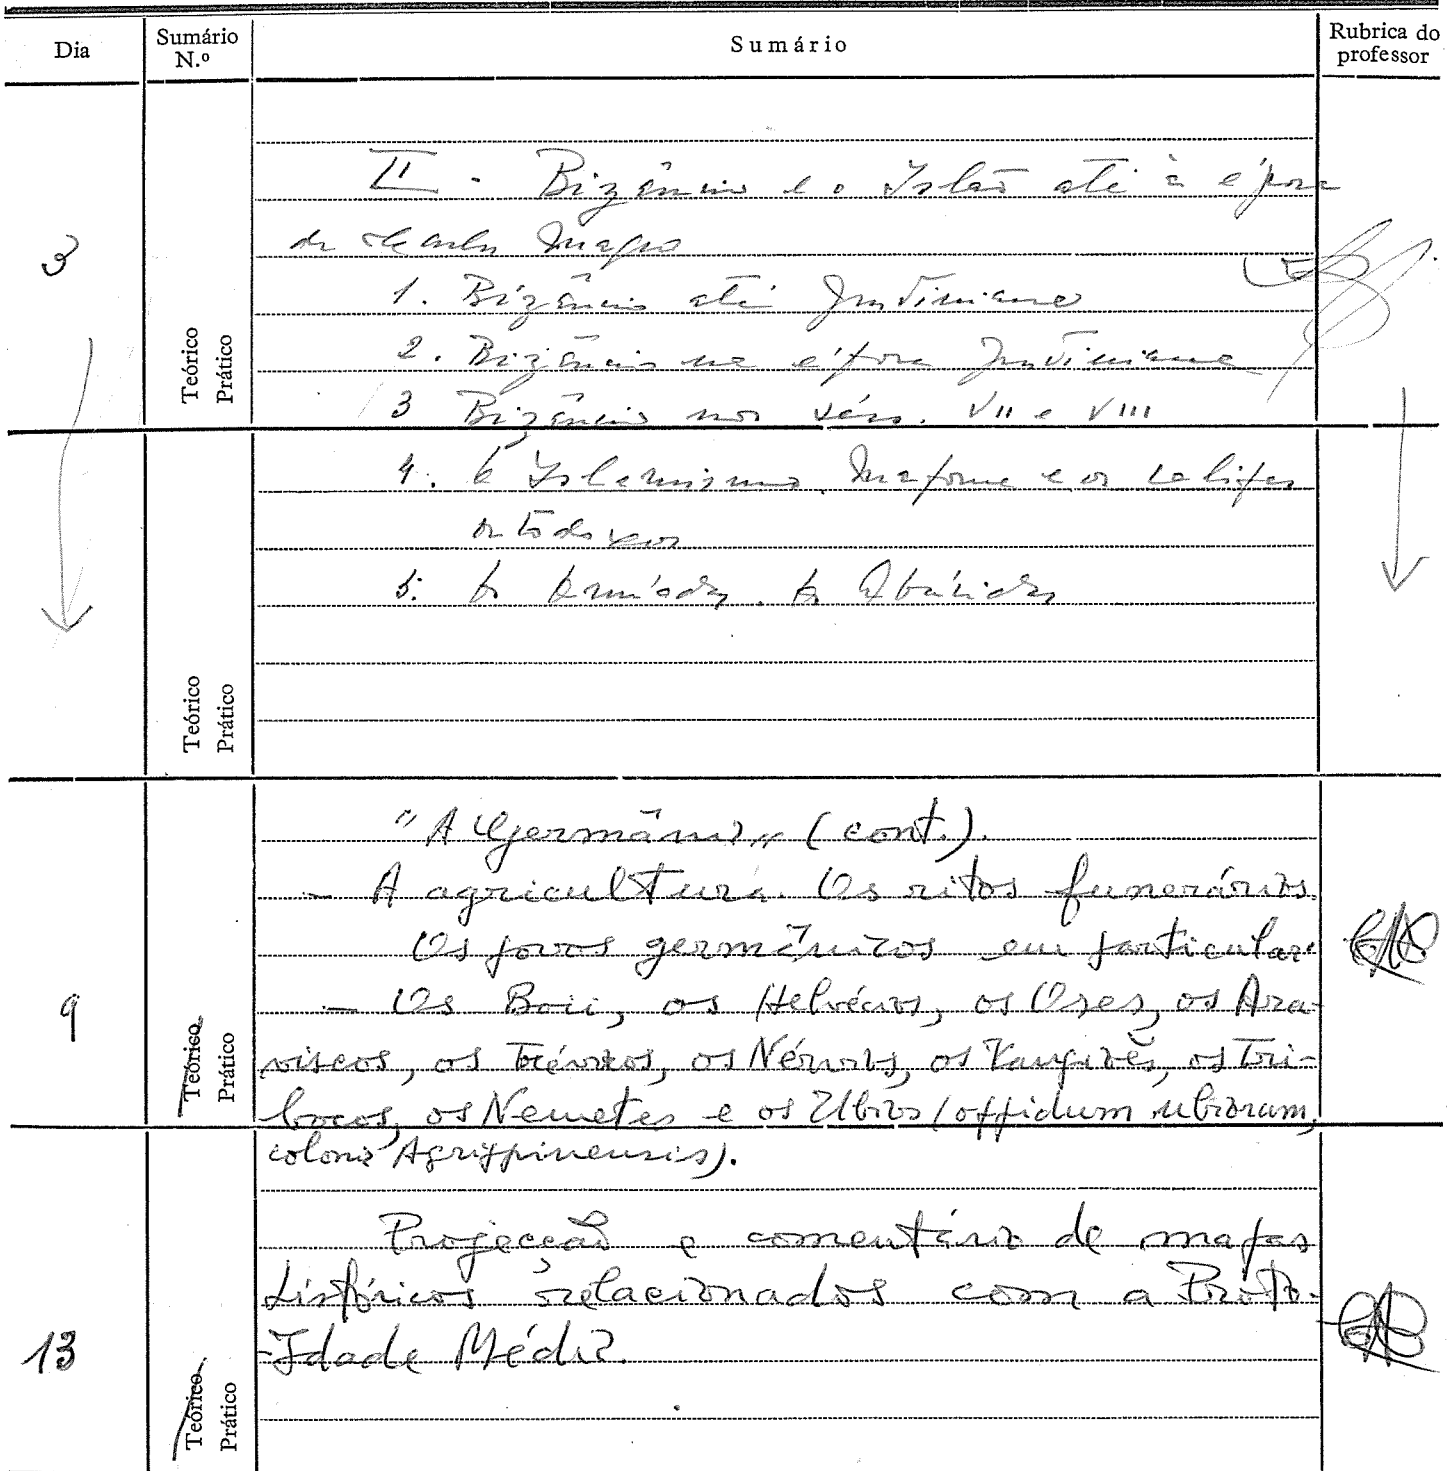 Dia
Sumário N.º
Sumário
Rubrica do professor
3
Teórico
Prático
II - Bizâncio e o Islão até à época
de Carlos Magno
1. Bizâncio até Justiniano
2. Bizâncio na época Justiniana
3 Bizâncio nos sécs. VII e VIII
Teórico
Prático
4. O Islamismo. Mafoma e os califas
ortodoxos
5. Os Omíadas. Os Abácidas
9
Teórico
Prático
"A Germânia" (cont.).
- A agricultura. Os ritos funerários.
Os povos germânicos em particular:
- Os Boii, os Helvécios, os Oses, os Ara-
viscos, os Tréviros, os Nérvios, os Vangiões, os Tri-
bocos, os Nemetes e os Úbios (oppidum ubioram,
colonia Agrippinensis).
13
Teórico
Prático
Projecção e comentário de mapas
históricos relacionados com a Proto-
-Idade Média.